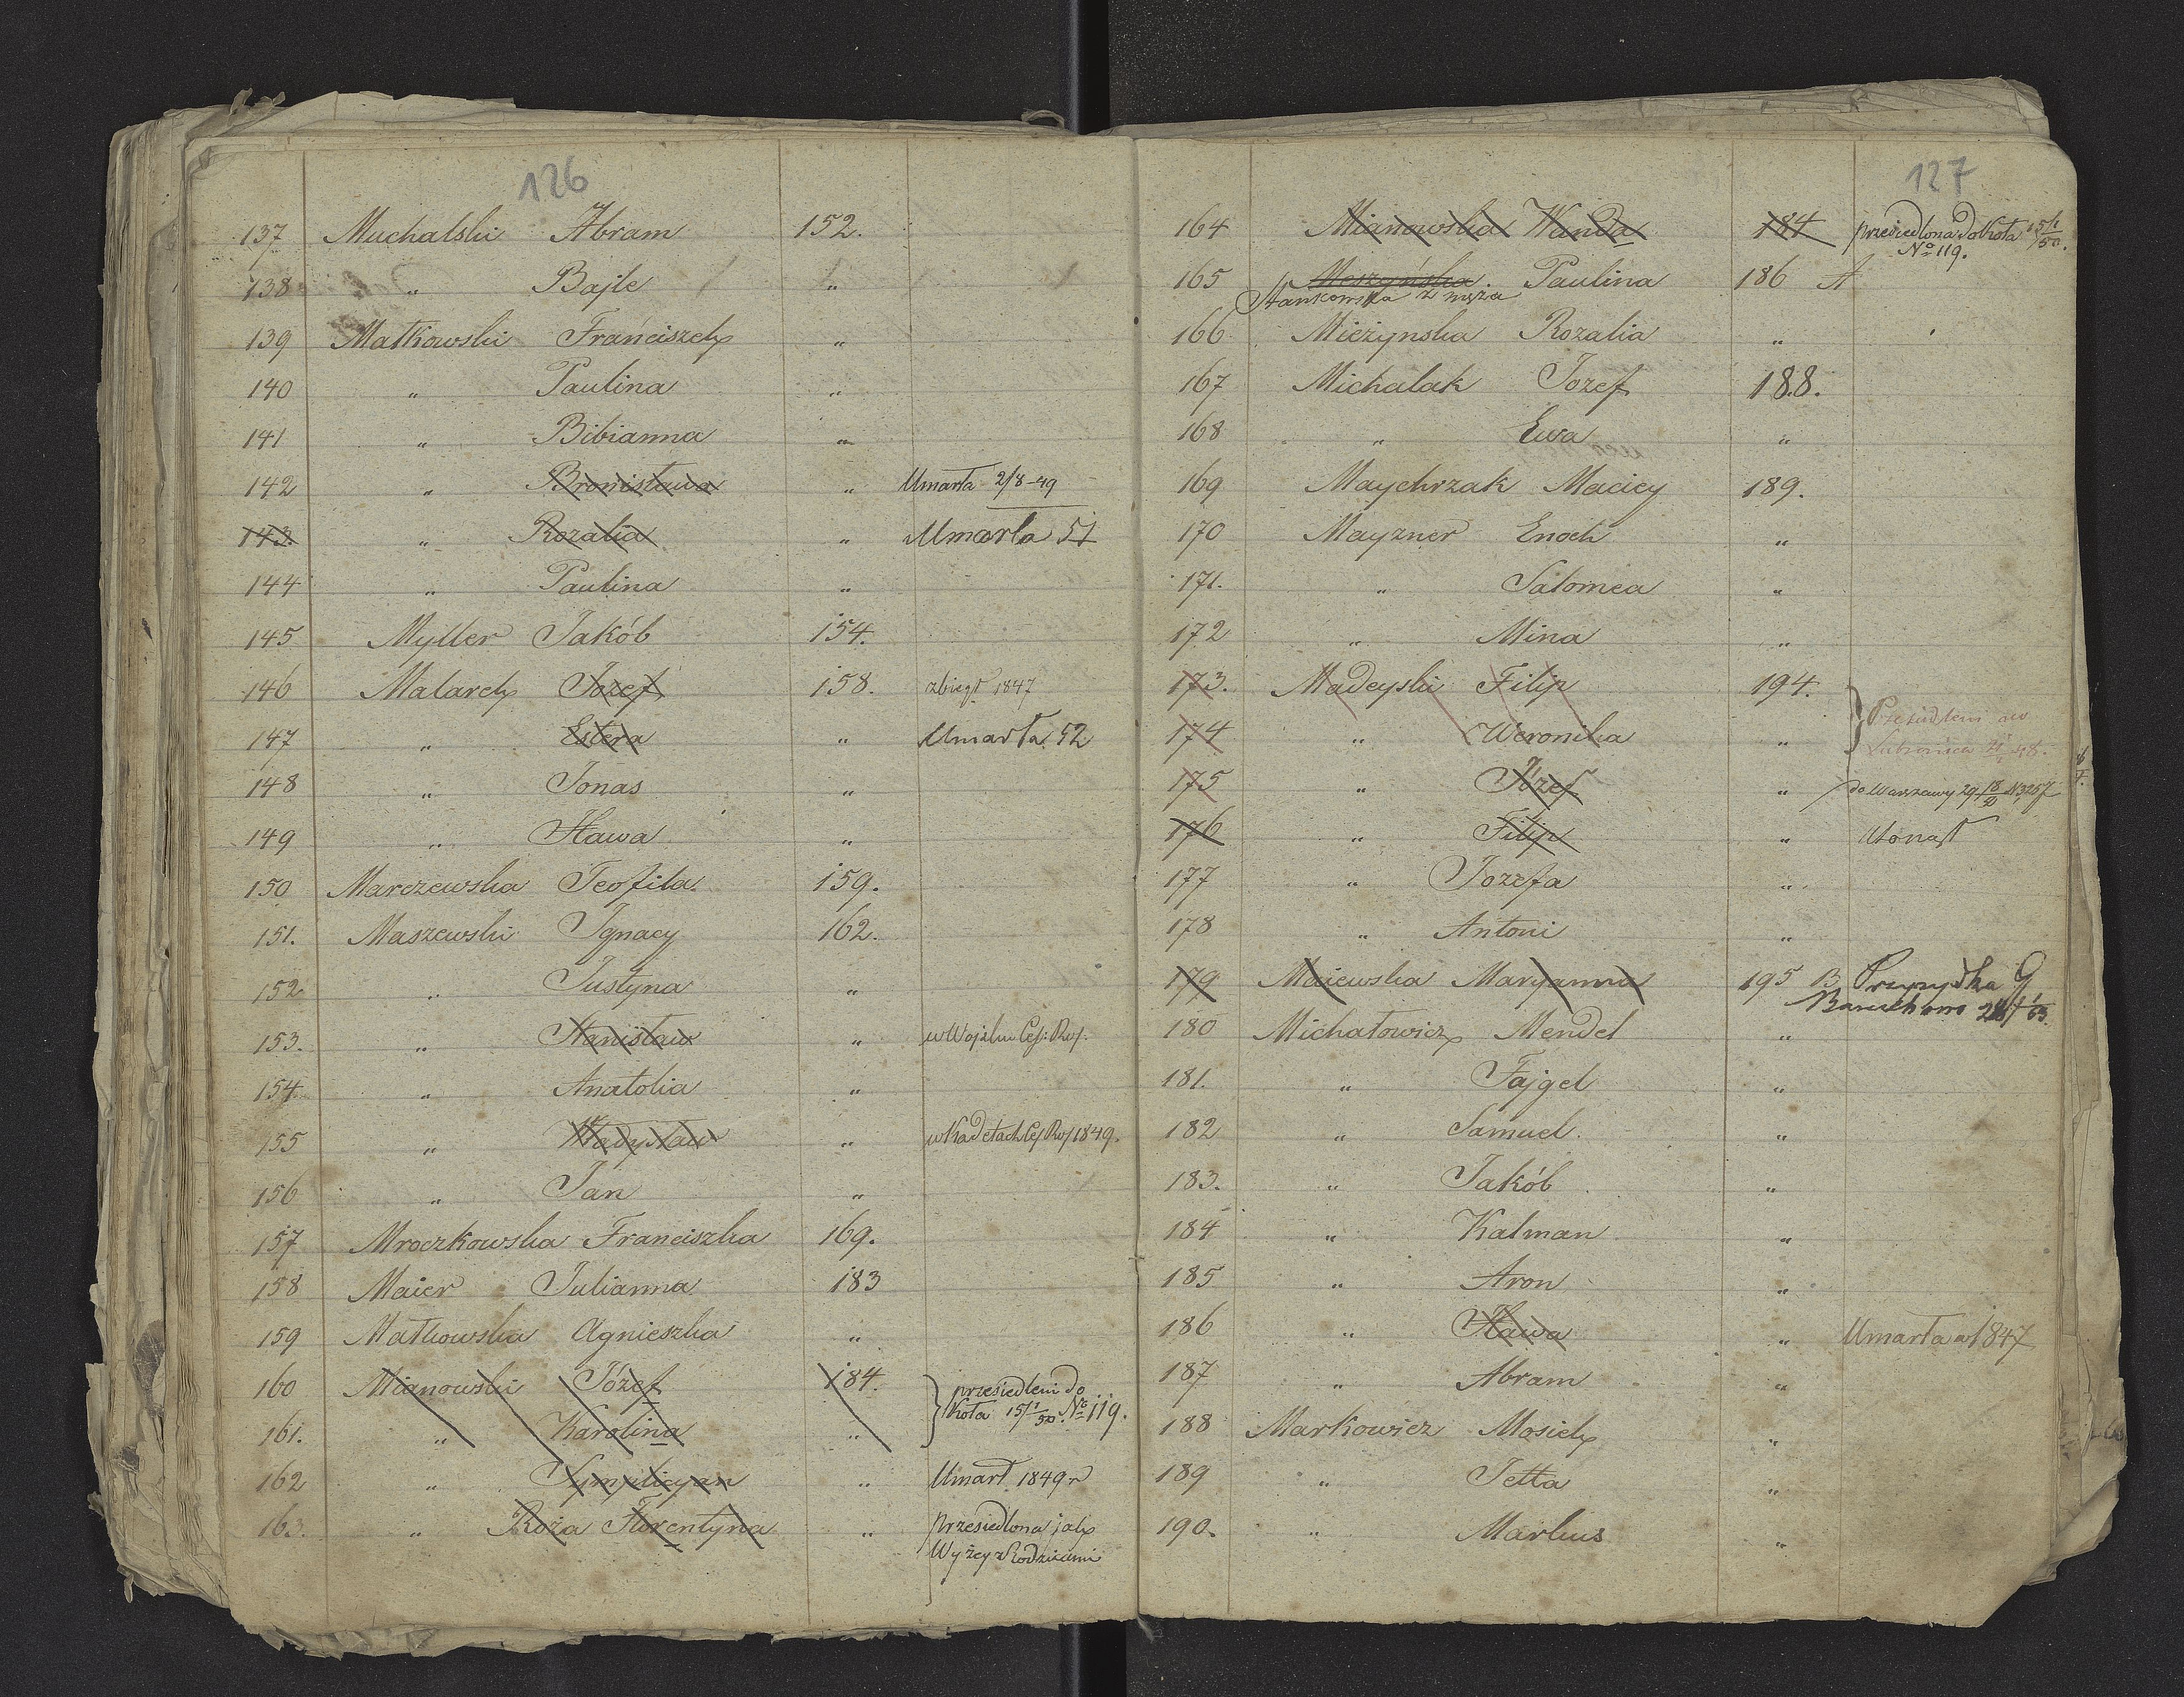 126
137 Muchalski Abram 152.
138 " Bajle "
139 Matkowski Franciszek "
140 " Paulina "
141 " Bibianna "
142 " Bronisława " Umarła 2/8-49
143. " Rozalia " Umarła 51
144 " Paulina "
145 Myller Jakób 154.
146 Malarek Jozef 158. zbiegł 1847
147 " Estera " Umarła 52
148 " Jonas "
149 " Hawa "
150 Marczewska Teofila 159.
151. Maszewski Ignacy 162.
152 " Justyna "
153. " Stanisław " w Wojsku Ces: Ros:
154. " Anatolia "
155 " Władysław " w Kadetach Ces Ros 1849.
156 " Jan "
157 Mroczkowska Franciszka 169.
158 Maier Julianna 183
159 Matkowska Agnieszka "
160 Mianowski Józef 184. przesiedleni do
161. " Karolina " Koła 15/1 50. No 119.
162 " Symplicyan " Umarł 1849 r
163. " Roża Florentyna " przesiedlona jak
Wyżey z Rodzicami
127
164 Mianowska Wanda 184 przesiedlona do Koła 15/1 50.
No 119.
165 Meszyńska Paulina 186 A
Stankowska z męża
166 Mieżynska Rozalia "
167 Michalak Jozef 188.
168 " Ewa "
169 Maychrzak Maciey 189.
170 Mayzner Enoch "
171. " Salomea "
172 " Mina "
173. Madeyski Filip 194.
Przesiedleni do
174 " Weronika "
175 " Józef " do Warszawy
176 " Filip " Utonął
177 " Jozefa "
178 " Antoni "
179 Maiewska Maryanna 195 B Przyszła G
Baruchowo
180 Michałowicz Mendel "
181. " Fajgel "
182 " Samuel "
183. " Jakób "
184 " Kalman "
185 " Aron "
186 " Hawa " Umarła w 1847
187 " Abram "
188 Markowicz Mosiek "
189 " Jetta "
190. " Markus "